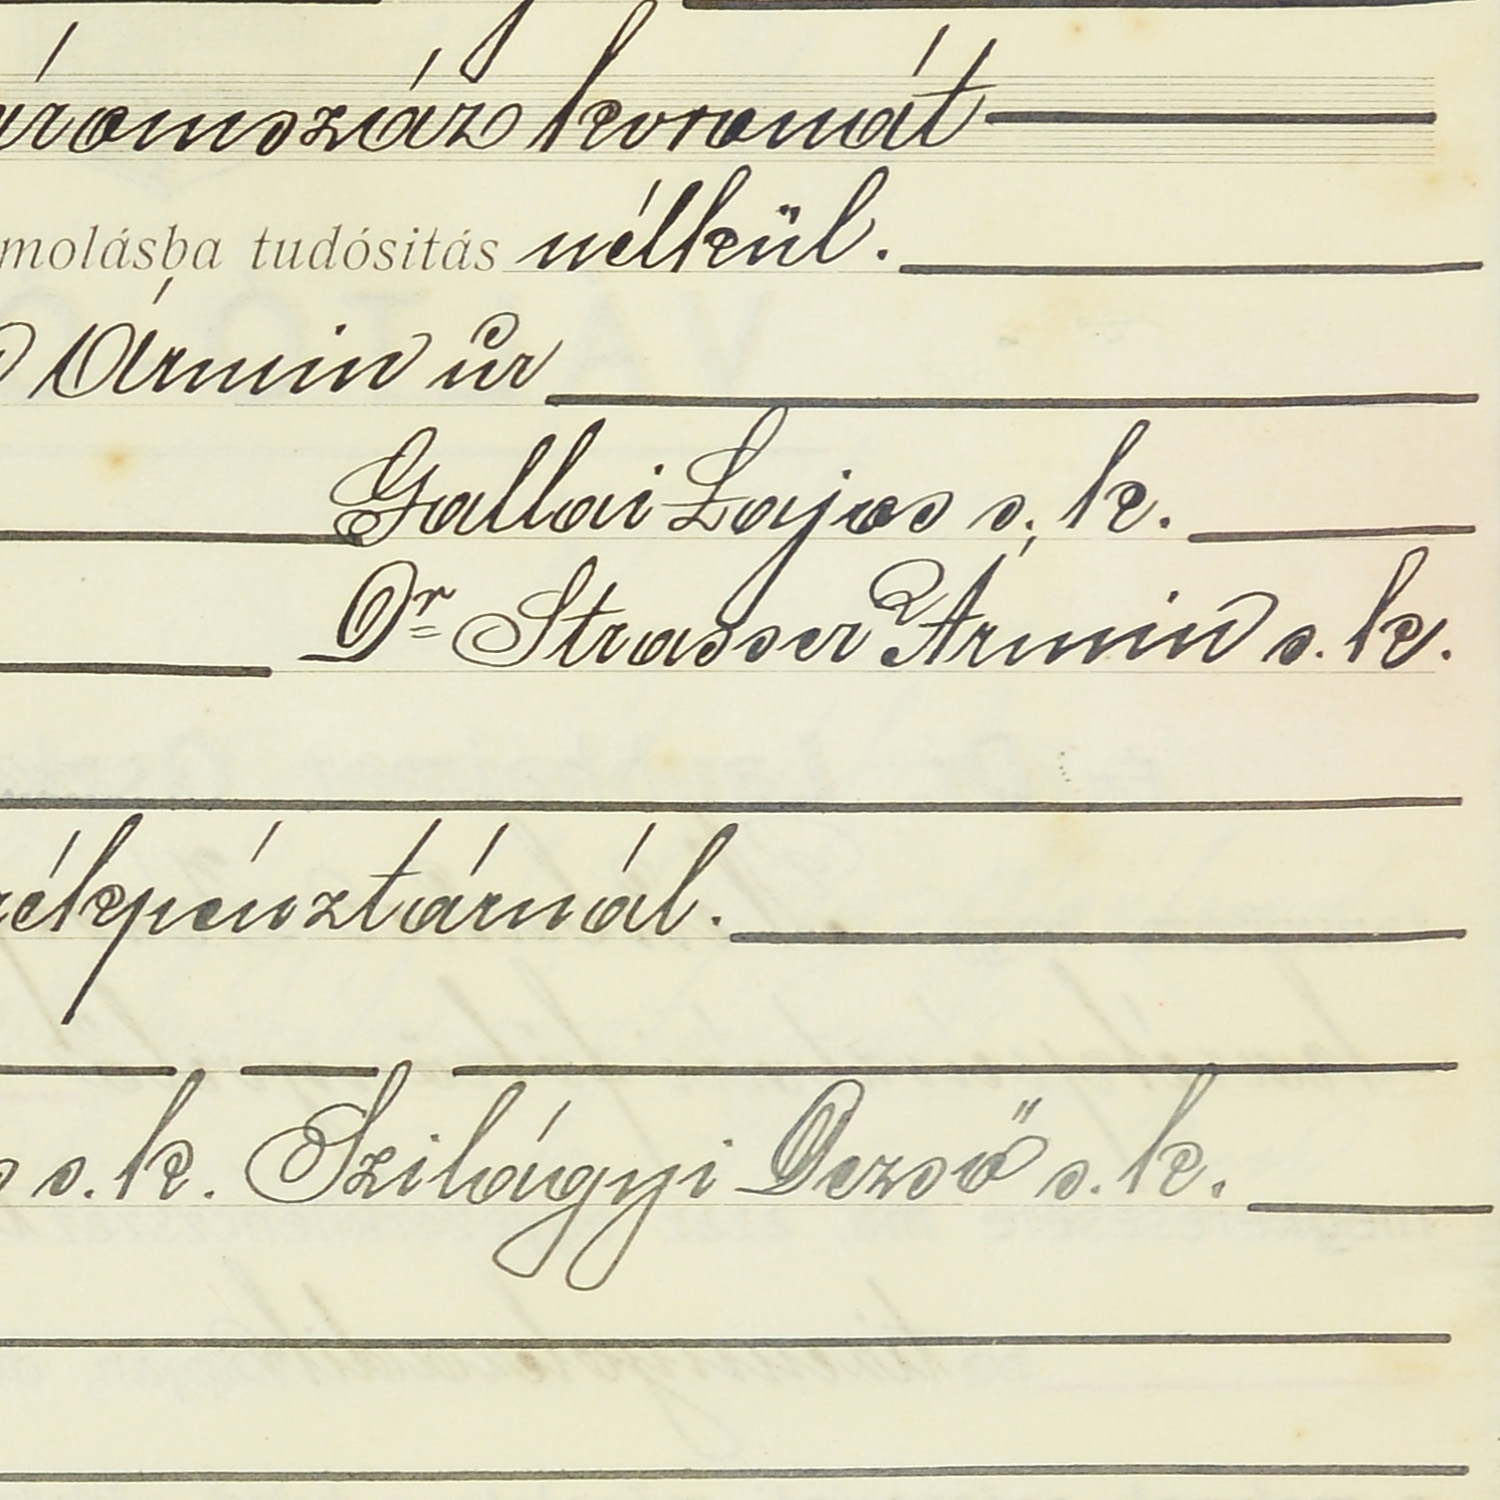 áromszáz koronát
molásba tudósitás nélkül.
Ármin úr
Gallai Lajos s. k.
Dr Strasser Ármin s. k.
rékpénztárnál.
s s. k. Szilágyi Dezső s. k.